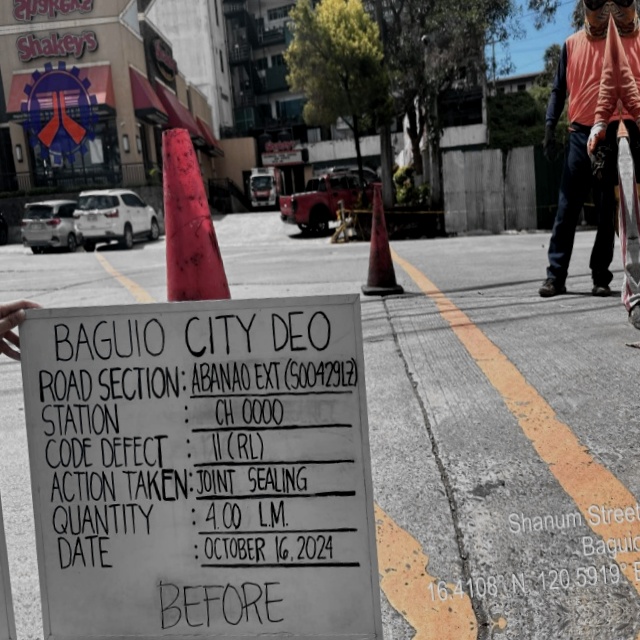 Shakey's
Shakey's
BAGUIO CITY DEO
ROAD SECTION: ABANAO EXT (S00429LZ)
STATION : CH 0000
CODE DEFECT : 11 (RL)
ACTION TAKEN: JOINT SEALING
QUANTITY : 4.00 L.M.
DATE : OCTOBER 16, 2024
BEFORE
Shanum Street
Baguio
16.4108° N, 120.5919° E